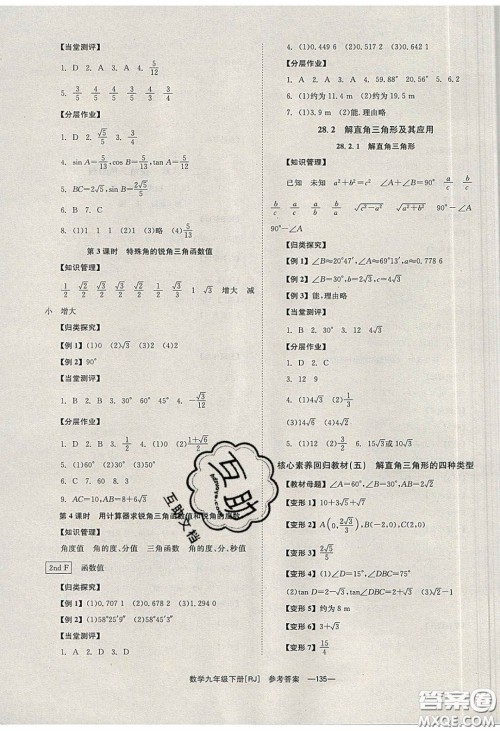 【当堂测评】
1. D 2. A 3. A 4. 5/12
5. 3/5 4/5 4/5 3/5 3/4 4/3
【分层作业】
1. D 2. √5/5 3. 3/4
4. sin A=5/13, cos B=5/13, tan A=5/12
5. BC=2√5, sin B=
6. B 7. C
8. (1)1 1 1 (2)1 (3) (4)
第 3 课时 特殊角的锐角三角函数值
【知识管理】
1/2 √2/2 √3/2 √3/2 √2/2 1/2 √3/3 1 √3 增大 减
小 增大
【归类探究】
【例 1】 (1)0 (2)√3 (3)2
【例 2】 90°
【当堂测评】
1. B 2. B 3. 30° 60° 45° 4. -√3/12
【分层作业】
1. D 2. B 3. 1/2 4. (1)0 (2)(1+√6)/2
5. B 6.
7.
9. AC=10, AB=8+6√3
第 4 课时 用计算器求锐角三角函数值和锐角的度数
【知识管理】
角度值 角的度、分值 三角函数 角的度、分、秒值
2nd F 函数值
【归类探究】
【例 1】 (1)0.707 1 (2)0.678 2 (3)1.294 0
【例 2】 (1)58°25′9″ (2)58°45′54″
【当堂测评】
1. D 2. D 3. A
4. (1)0.449 6 (2)0.517 2 (3)0.642 1
【分层作业】
1. A 2. A 3. A 4. 59.88° 20.56° 5. 6.2
6. (1)约为 11.4 m (2)约为 19.5 m
7. (1)3.9 m (2)能, 理由略
28.2 解直角三角形及其应用
28.2.1 解直角三角形
【知识管理】
已知 未知 a²+b²=c² ∠A+∠B=90° a/c b/c
b/a a b/c a/c b/a √(c²-a²) √(a²+b²) 90°
90°-∠A
【归类探究】
【例 1】 ∠B≈20°47′, ∠A≈69°13′, a≈0.778 6
【例 2】 ∠B=30°, b=2√3, c=4√3
【例 3】 能, 理由略
【当堂测评】
1. B 2. 30° 3. 24 4. 4√3
【分层作业】
1. D 2. C
3. 12 9
4. (1)4√3 (2)
5. (1)16√3 (2)12 6. 15√3或 10√3
核心素养回归教材(五) 解直角三角形的四种类型
【教材母题】
【变形 1】 10+3√5+√21
【变形 2】 A(0, 2√3/3), B(-2,0), C(2,0)
【变形 3】 2√5/5
【变形 4】 (1)∠D=15°, ∠DBC=75°
(2)tan D=2-√3, tan∠DBC=2+√3
【变形 5】 约为 8 m
【变形 6】 3+√3
【变形 7】
数学九年级下册[RJ] 参考答案 —135—
互助
互助文档
答案圈
MXQE.COM